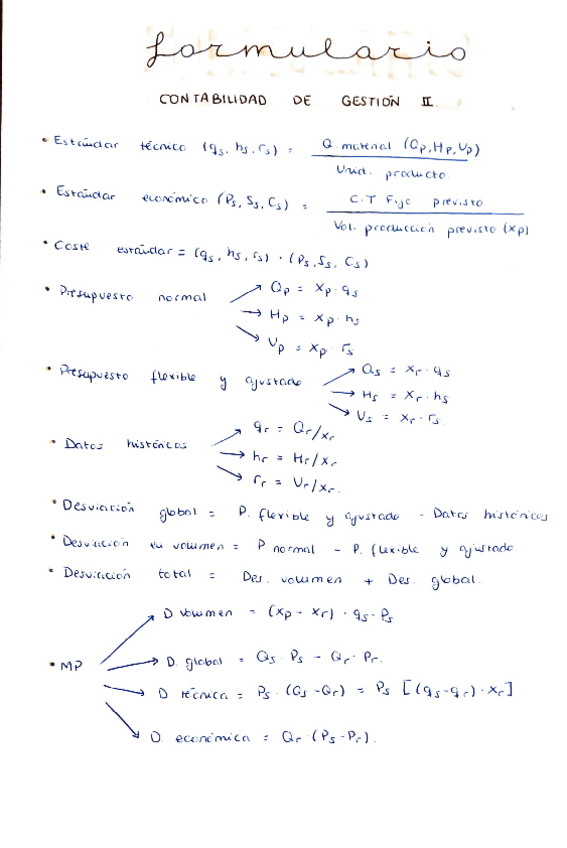 formulario
CONTABILIDAD DE GESTIÓN II
• Estándar técnico (qs, hs, rs) = Q. material (Qp, Hp, Up) / Unid. producto.
• Estándar económico (Ps, Ss, Cs) = C.T Fijo previsto / Vol. producción previsto (Xp)
• Coste estándar = (qs, hs, rs) · (Ps, Ss, Cs)
• Presupuesto normal
→ Qp = Xp · qs
→ Hp = Xp · hs
→ Up = Xp · rs
• Presupuesto flexible y ajustado
→ Qs = Xr · qs
→ Hs = Xr · hs
→ Us = Xr · rs.
• Datos históricos
→ qr = Qr/Xr
→ hr = Hr/Xr
→ rr = Ur/Xr.
• Desviación global = P. flexible y ajustado - Datos históricos
• Desviación en volumen = P normal - P. flexible y ajustado.
• Desviación total = Des. volumen + Des. global.
• MP
→ D. volumen = (Xp - Xr) · qs · Ps
→ D. global = Qs · Ps - Qr · Pr.
→ D técnica = Ps · (Qs - Qr) = Ps [(qs - qr) · Xr]
→ D. económica = Qr · (Ps - Pr).